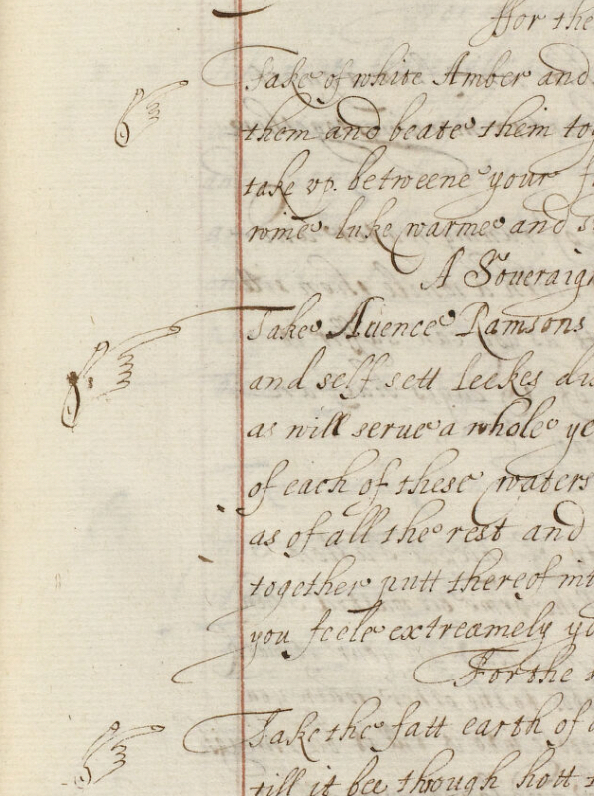 ffor the
Take of white Amber and
them and beate them tog
take vp. betweene your f
wine luke warme and
A Soueraig
Take Auence Ramsons
and self sett Leekes dis
as will serue a whole ye
of each of these waters
as of all the rest and
together putt thereof int
you feele extreamely yo
For the
Take the fatt earth of
till it bee through hott